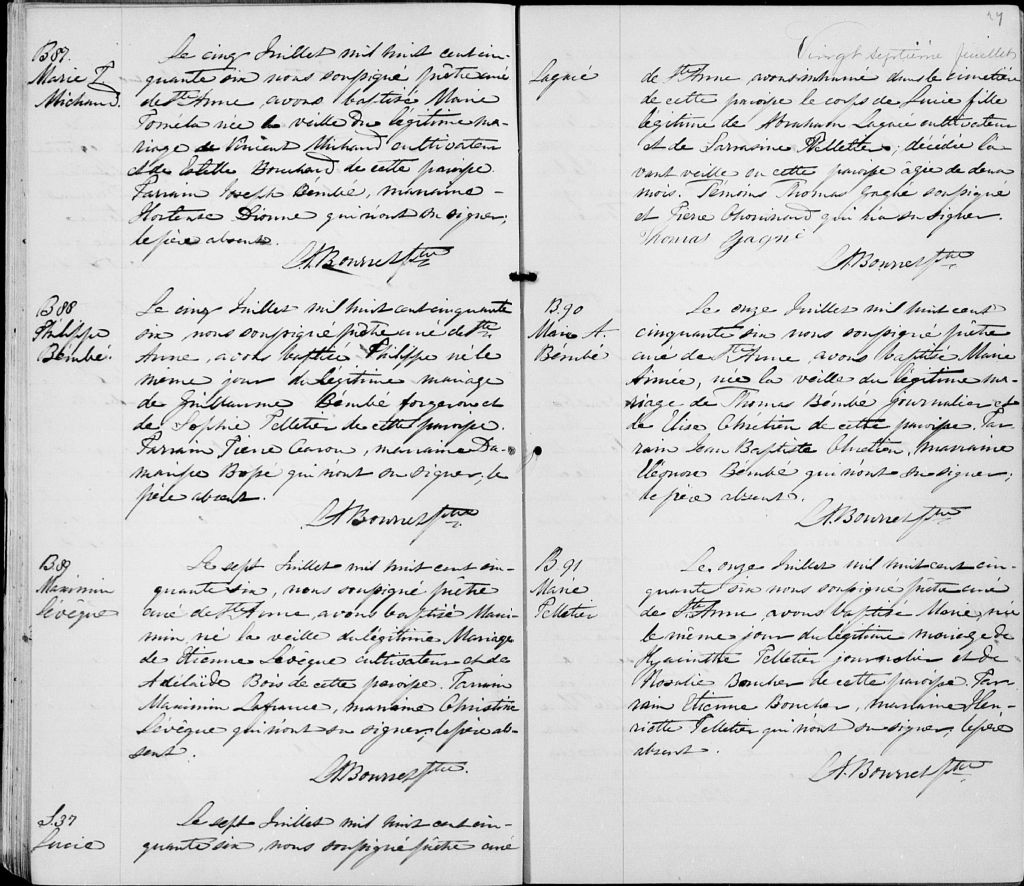 B87.
Marie T.
Michaud.
Le cinq Juillet mil huit cent cin-
quante six nous soussigné prêtre curé
de Ste Anne, avons baptisé Marie
Toméla née la veille du légitime ma-
riage de Vincent Michaud cultivateur
et de Bouchard de cette paroisse.
Parrain Joseph Bembé, marraine
Hortense Dionne qui n'ont su signer,
le père absent.
Bourret ptre
B88
Philippe
Bembé.
Le cinq Juillet mil huit cent cinquante
six nous soussigné prêtre curé de Ste
Anne, avons baptisé Philippe né le
même jour du légitime mariage
de Guillaume Bémbé forgeron et
de Sophie Pelletier de cette paroisse.
Parrain Pierre Caron, marraine Da-
marisse Bossé qui n'ont su signer, le
père absent.
Bourret ptre
B.89
Maximin
Lévêque
Le sept Juillet mil huit cent cin-
quante six, nous soussigné prêtre
curé de Ste Anne, avons baptisé Maxi-
min, né la veille du légitime Mariage
de Etienne Lévêque cultivateur et de
Adélaïde Bois de cette paroisse. Parrain
Maximin Lafrance, marraine Christine
Lévêque qui n'ont su signer, le père ab-
sent.
Bourret ptre.
S.37
Lucie
Le sept Juillet mil huit cent cin-
quante six, nous soussigné prêtre curé
27
Vingt septième feuillet
Lagacé
de Ste Anne, avons inhumé dans le cimetière
de cette paroisse le corps de Lucie fille
légitime de Abraham Lagacé cultivateur
et de Sarrasine Pelletier, décédée l'a-
vant veille en cette paroisse âgée de deux
mois. Témoins Thomas Gagné soussigné
et Pierre Chouinard qui n'a su signer.
Thomas Gagné
Bourret ptre
B.90
Marie A.
Bembé
Le onze Juillet mil huit cent
cinquante six nous soussigné prêtre
curé de Ste Anne, avons baptisé Marie
Aimée, née la veille du légitime ma-
riage de Thomas Bémbé journalier et
de Elise Chrétien de cette paroisse. Par-
rain Jean Baptiste Chrétien, marraine
Eléonore Bémbé qui n'ont su signer,
le père absent.
Bourret ptre
B.91
Marie
Pelletier
Le onze Juillet mil huit cent cin-
quante six nous soussigné prêtre curé
de Ste Anne, avons baptisé Marie, née
le même jour du légitime mariage de
Hyacinthe Pelletier journalier et de
Rosalie Boucher de cette paroisse. Par-
rain Etienne Boucher, marraine Hen-
riette Pelletier qui n'ont su signer, le père
absent.
Bourret ptre